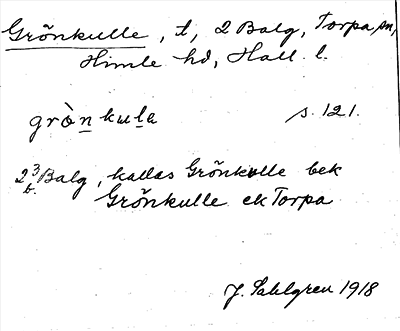 Grönkulle, t, 2 Balg, Torpa sn,
Himle hd, Hall. l.
grò̀n kula s. 121.
2³ Balg, kallas Grönkulle bek
b.
Grönkulle ek Torpa
J. Sahlgren 1918